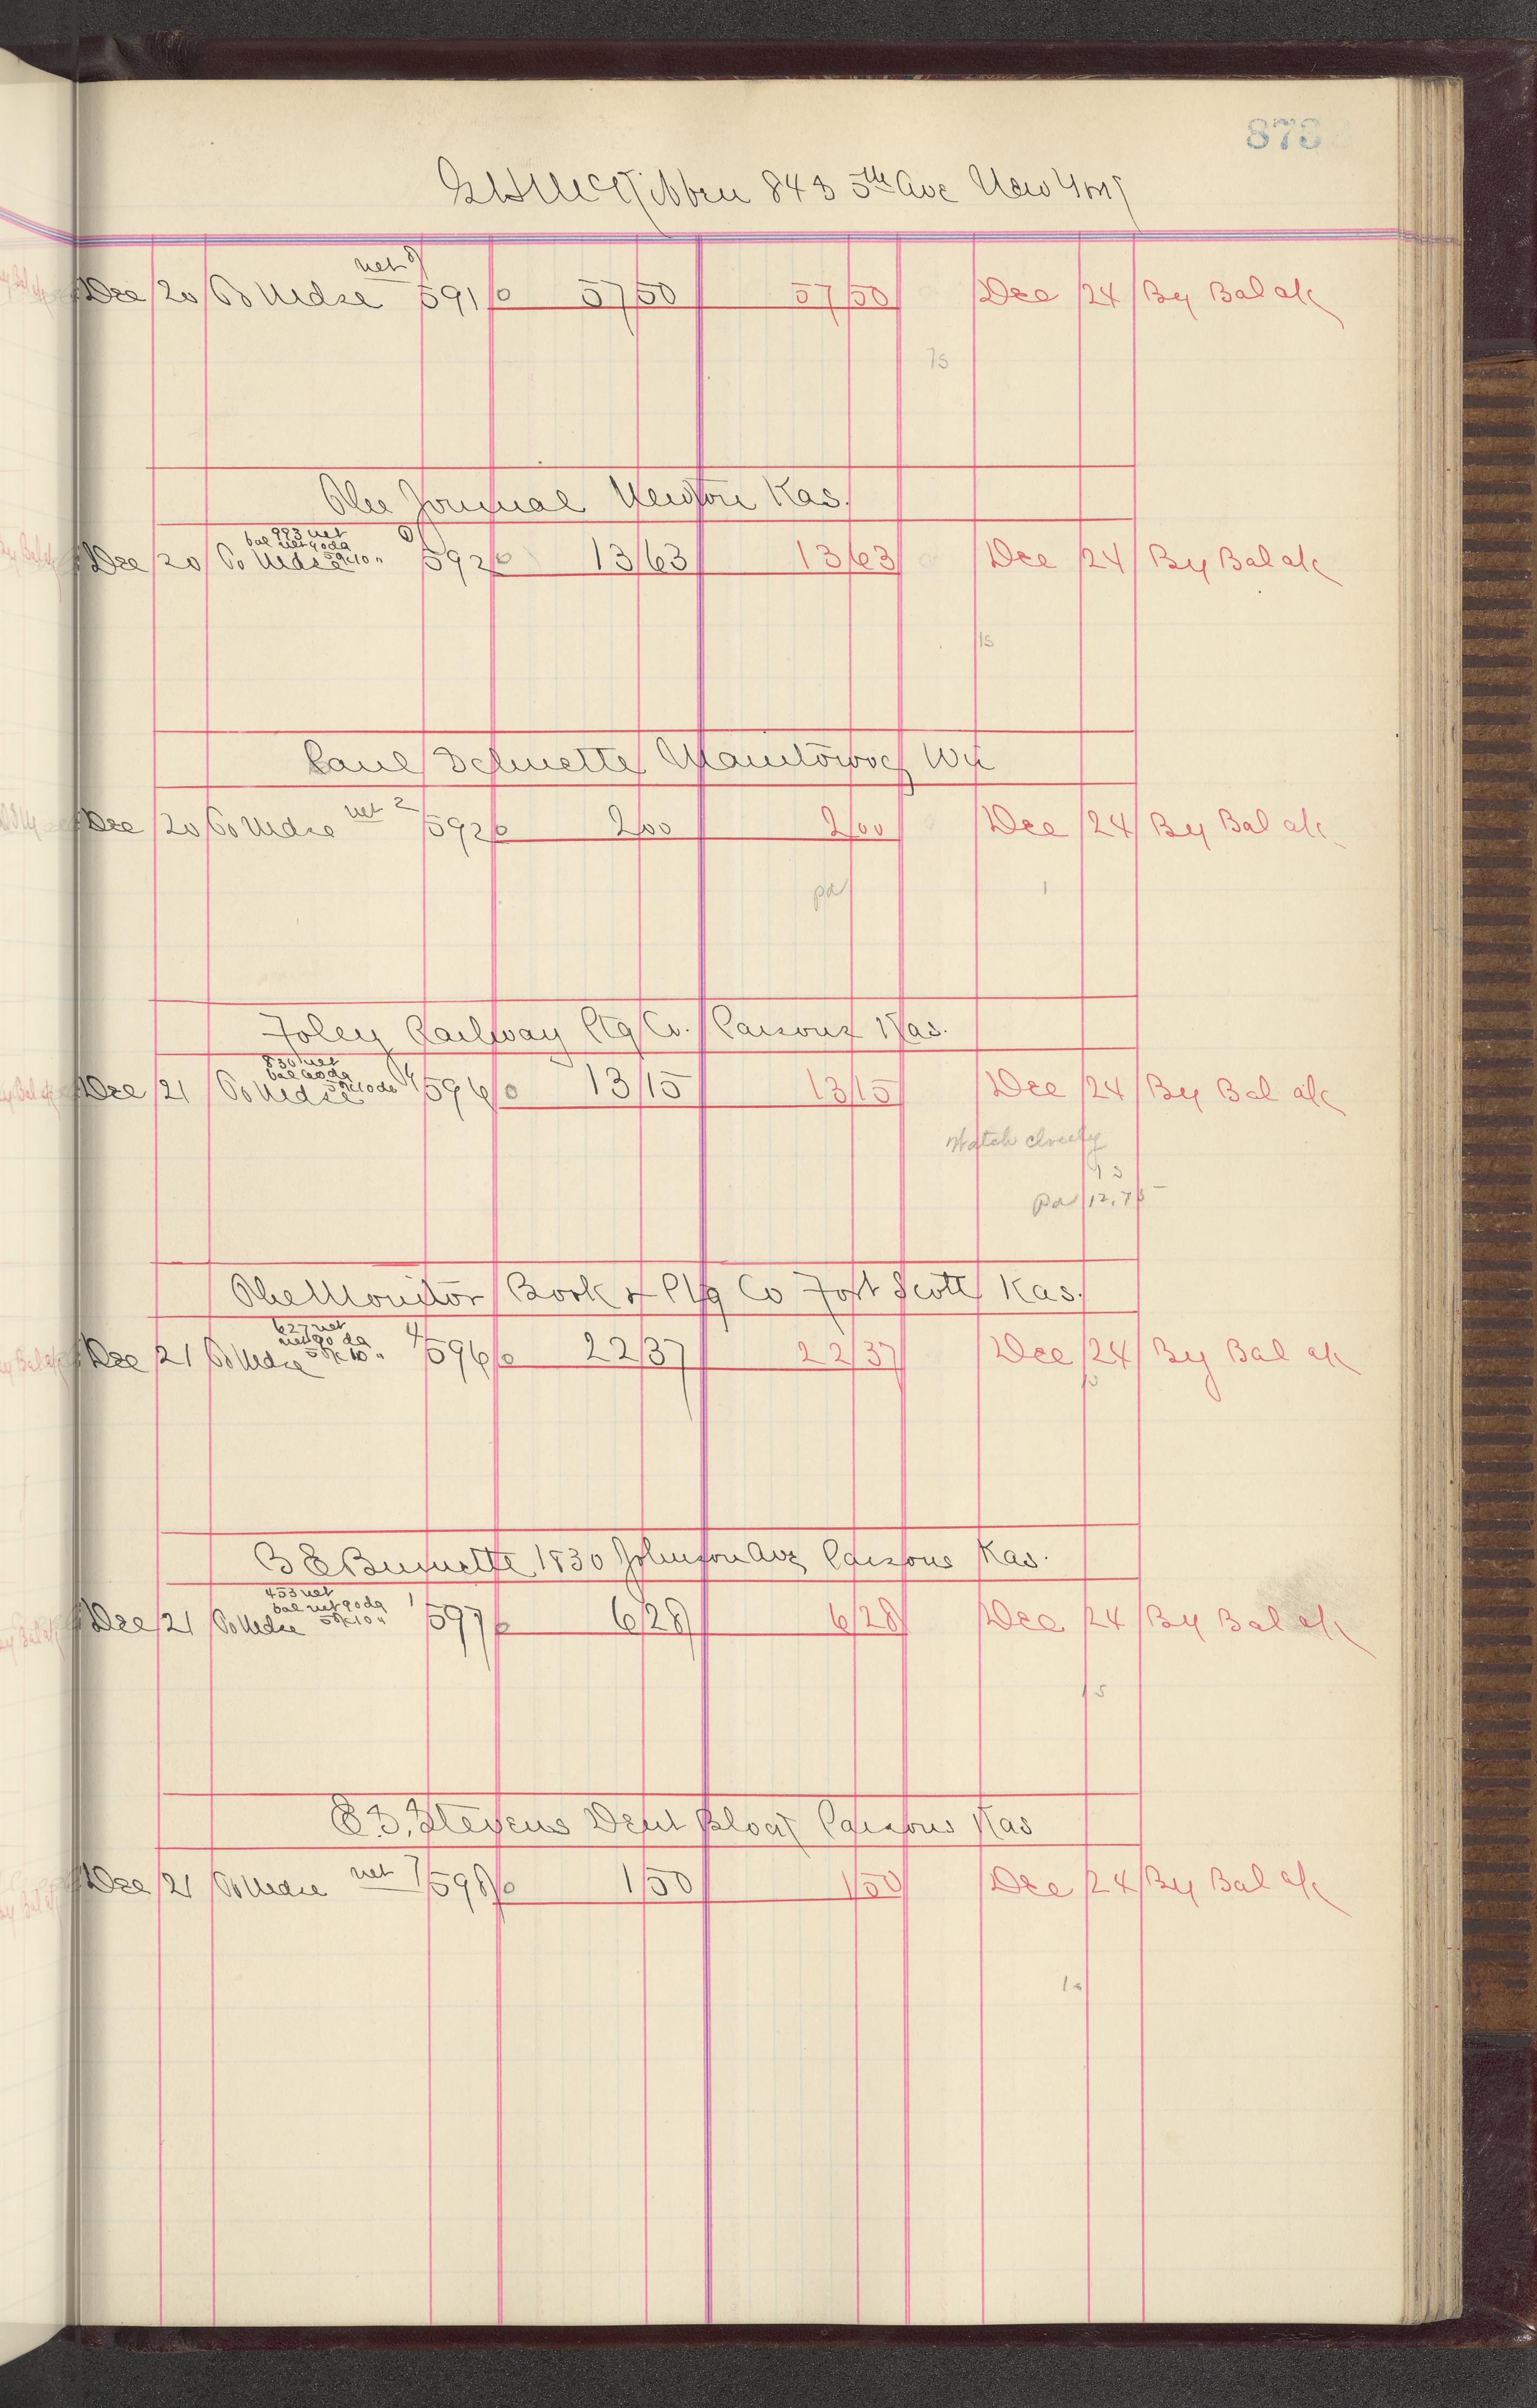 873
G H McKibben 843 5th Ave New York
net
Dec 20 To Mdse 591 57 50 57 50 Dec 24 By Bal a/c
The Journal Newton Kas.
993 net
bal net 90 da
Dec 20 To Mdse 5% 10 " 592 13 63 13 63 Dec 24 By Bal a/c
15
Paul Schuette Manitowoc Wis
Dec 20 To Mdse net 2 592 2 00 2 00 Dec 24 By Bal a/c
pd
Foley Railway Ptg Co. Parsons Kas.
830 net
bal 60 da
Dec 21 To Mdse 5% 10 da 596 13 15 13 15 Dec 24 By Bal a/c
Watch closely
pd 12.75
The Monitor Book & Ptg Co Fort Scott Kas.
627 net
net 90 da 4
Dec 21 To Mdse 5% 10 " 596 22 37 22 37 Dec 24 By Bal a/c
B E Burnette 1830 Johnson Ave Parsons Kas.
453 net
bal net 90 da 1
Dec 21 To Mdse 5% 10 " 597 6 28 6 28 Dec 24 By Bal a/c
15
E. S. Stevens Dent Block Parsons Kas
Dec 21 To Mdse net 7 598 1 50 1 50 Dec 24 By Bal a/c